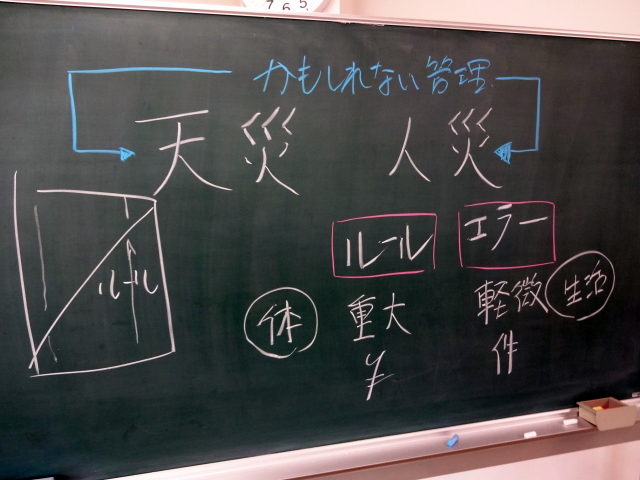 7 6 5
かもしれない管理
天災 人災
ルール エラー
ルール
体 重大 軽微 生活
¥ 件